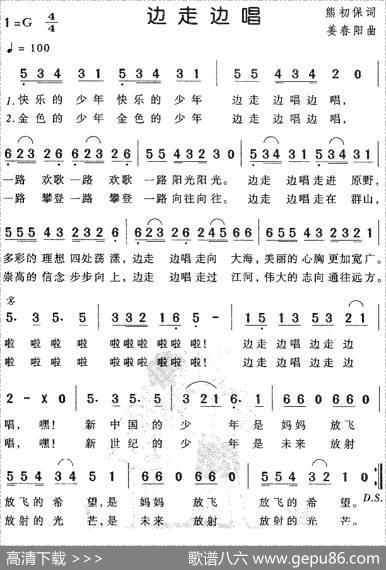 边走边唱
1=G 4/4
熊初保 词
姜春阳 曲
♩=100
5 3 4 3 1 5 3 4 3 1 5 5 5 3 4 3 4 2 0
1.快乐的 少年 快乐的 少年 边走 边唱边 唱，
2.金色的 少年 金色的 少年 边走 边唱边 唱，
6 2 3 2 6 6 2 3 2 6 5 5 4 3 2 3 0 5 5 3 4 5 3 4 3 1
一路 欢歌一路 欢歌 一路阳光阳光。 边走 边唱走进 原野，
一路 攀登一路 攀登 一路向往向往。 边走 边唱走在 群山，
5 5 5 4 3 2 3 2 2 5
多彩的 理想 四处荡漾，边走 边唱走向 大海，美丽的心胸更加宽广。
崇高的信念 步步向上，边走 边唱走过 江河，伟大的志向通往远方。
5. 3 5. 5 3 3 2 1 6 5 - 1 5 1 3 5 3 2 1
啦 啦 啦 啦 啦啦啦 啦啦 啦！ 边走边唱 边走边
啦 啦 啦 啦 啦啦啦 啦啦 啦！ 边走边唱 边走边
2 - X 0
唱， 嘿！ 新 中国的 少 年 是 妈妈 放飞
唱， 嘿！ 新 世纪的 少 年 是 未来 放射
5 5 4 3 4 5 1 6 6 0 6 6 0 5 5 4 5 1 0
放飞的 希 望，是 妈妈 放飞 放飞的 希 望。
放射的 光 芒，是 未来 放射 放射的 光 芒。
D.S.
高清下载 >>> 歌谱八六 www.gepu86.com